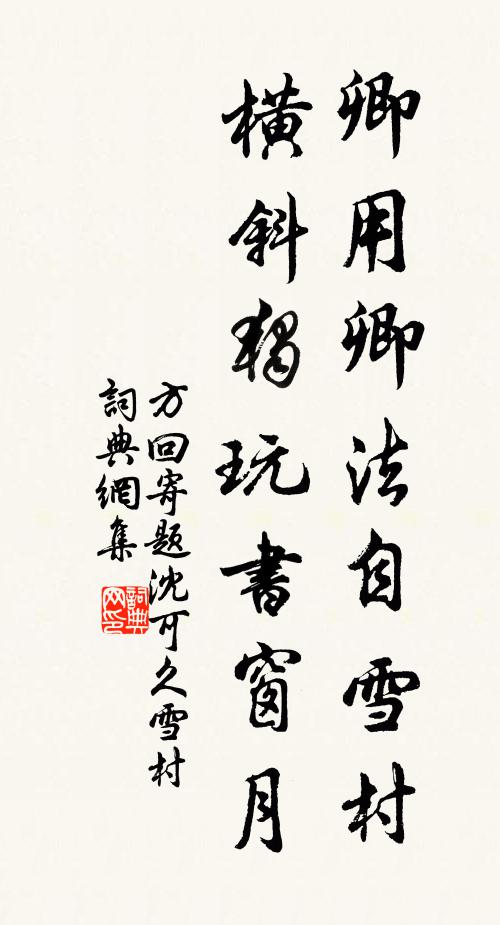 卿用卿法自雪村
橫斜獨玩書窗月
方回寄題沈可久雪村
詞典網集
詞典
网印